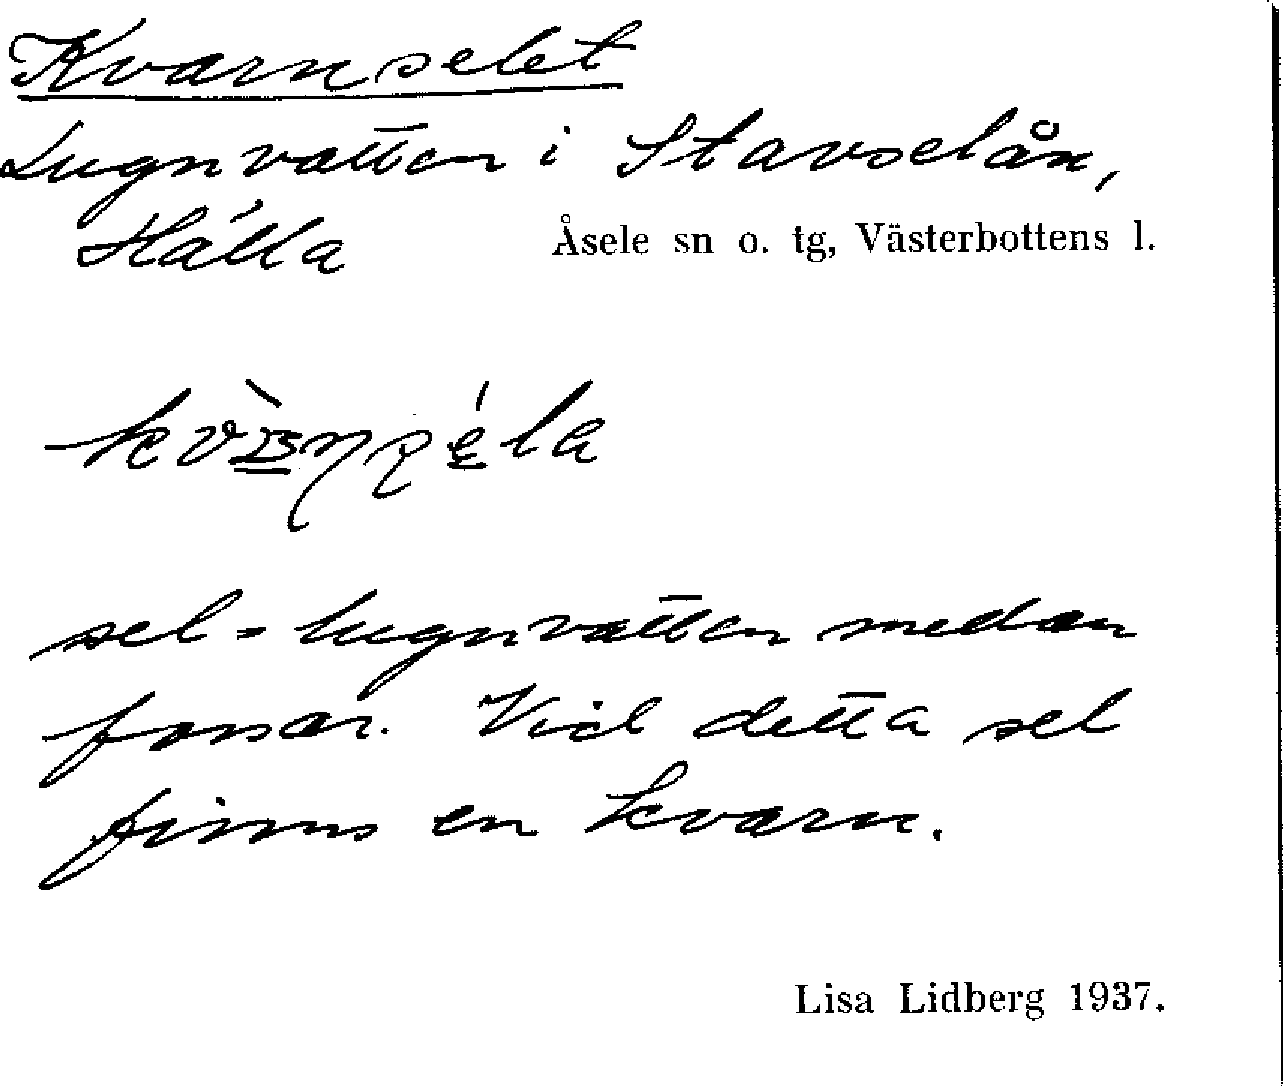 Kvarnselet
Lugnvatten i Stavselån,
Hälla Åsele sn o. tg, Västerbottens l.
sel = lugnvatten
forsar. Vid detta sel
finns en kvarn.
Lisa Lidberg 1937.